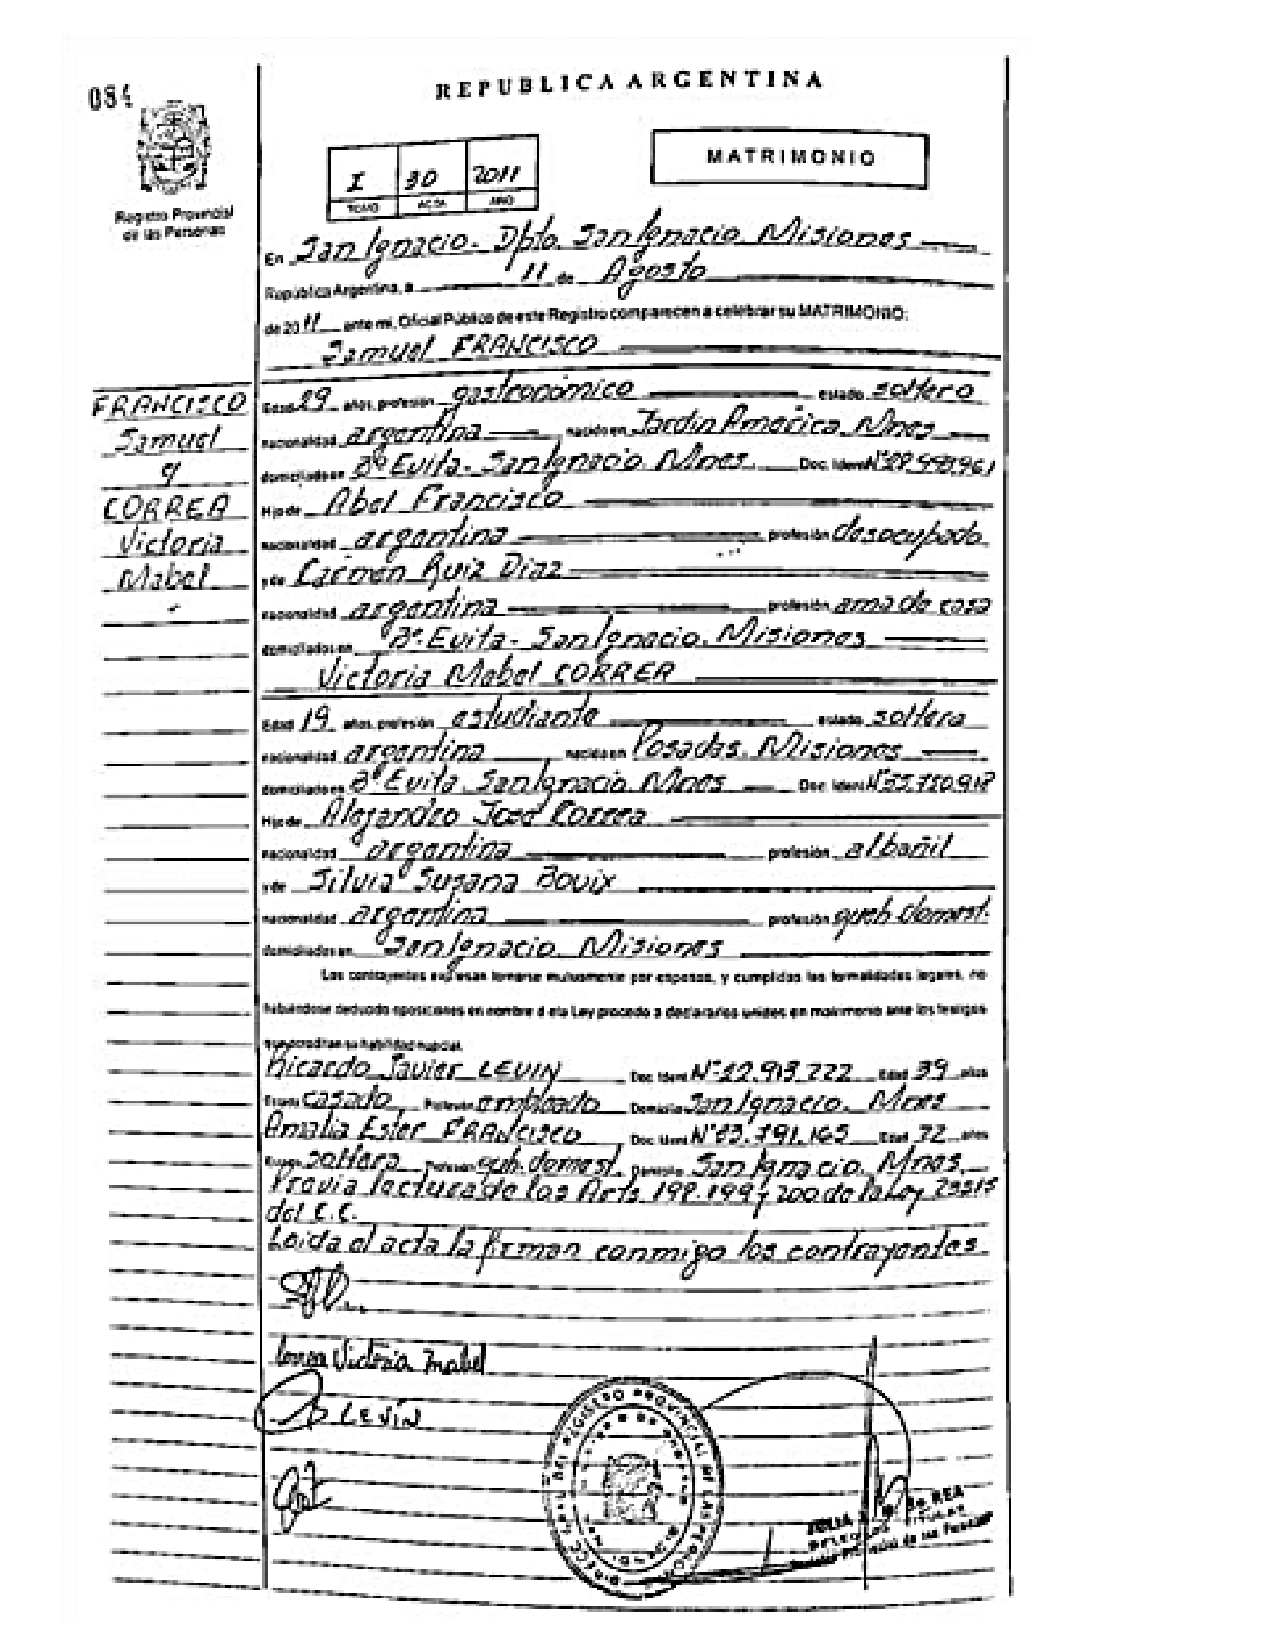 084
REPUBLICA ARGENTINA
MATRIMONIO
I 30 2011
TOMO ACTA AÑO
Registro Provincial
de las Personas
En San Ignacio - Dpto San Ignacio. Misiones
República Argentina, a 11 de Agosto
de 2011 ante mi, Oficial Público de este Registro comparecen a celebrar su MATRIMONIO:
Samuel FRANCISCO
FRANCISCO
Samuel
y
CORREA
Victoria
Mabel
Edad 29 años, profesión gastronómico estado soltero
nacionalidad argentina nacido en Jardin America Mnes
domiciliado en Bº Evita - San Ignacio Mnes. Doc. Ident Nº
Hijo de Abel Francisco
nacionalidad argentina profesión desocupado
y de Carmen Ruiz Diaz
nacionalidad argentina profesión ama de casa
domiciliados en Bº Evita - San Ignacio. Misiones
Victoria Mabel CORREA
Edad 19 años, profesión estudiante estado soltera
nacionalidad argentina nacido en Posadas. Misiones
domiciliado en Bº Evita. San Ignacio. Mnes Doc. Ident Nº
Hijo de Alejandro José Correa
nacionalidad argentina profesión albañil
y de Silvia Susana Bouix
nacionalidad argentina profesión domest.
domiciliados en San Ignacio. Misiones
Los contrayentes expresan tomarse mutuamente por esposos, y cumplidas las formalidades legales, no
habiéndose deducido oposiciones en nombre d ela Ley procedo a declararlos unidos en matrimonio ante los testigos
que acreditan su habilidad nupcial.
Ricardo Javier LEVIN Doc. Ident Nº 22.913.222 Edad 39 años
Estado casado Profesión empleado Domicilio San Ignacio. Mnes
Amalia Ester FRANCISCO Doc. Ident Nº Edad años
Estado soltera Profesión domest. Domicilio San Ignacio. Mnes.
Previa lectura de los Arts 198. 199 y 200 de la Ley 23515
del C.C.
Leida el acta la firman conmigo los contrayentes
Correa Victoria Mabel
LEVIN